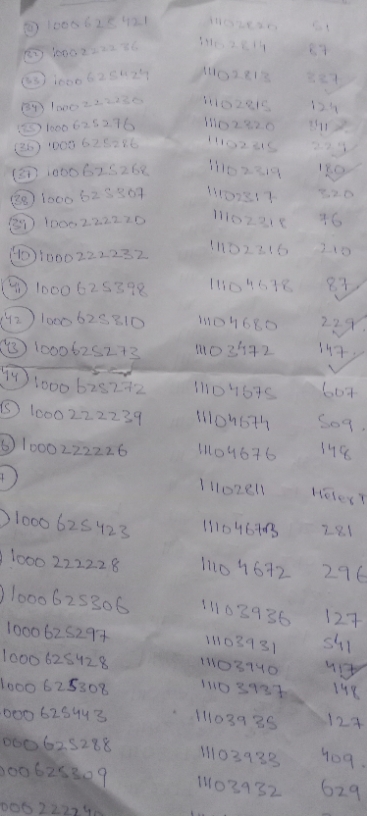 1000625421 11102820 51
1000222236 11102814 87
(33) 1000625424 11102813 387
(34) 1000222230 11102815 124
(35) 1000625276 11102320 341
(36) 1000625286 11102315 229
(37) 1000625268 11102319 180
(38) 1000625307 11102317 320
(39) 1000222220 11102318 76
(40) 1000222232 11102316 210
(41) 1000625398 11104678 87
(42) 1000625310 11104680 229
(43) 1000625273 11103472 147
(44) 1000625272 11104675 607
1000222239 11104674 509.
1000222226 11104676 148
11102811
1000625423 281
1000222228 11104672 296
1000625306 11103936 127
1000625297 11103931 541
1000625428 11103940 417
1000625308 11103937 148
000625443 11103935 127
000625288 11103933 409.
000625309 11103932 629